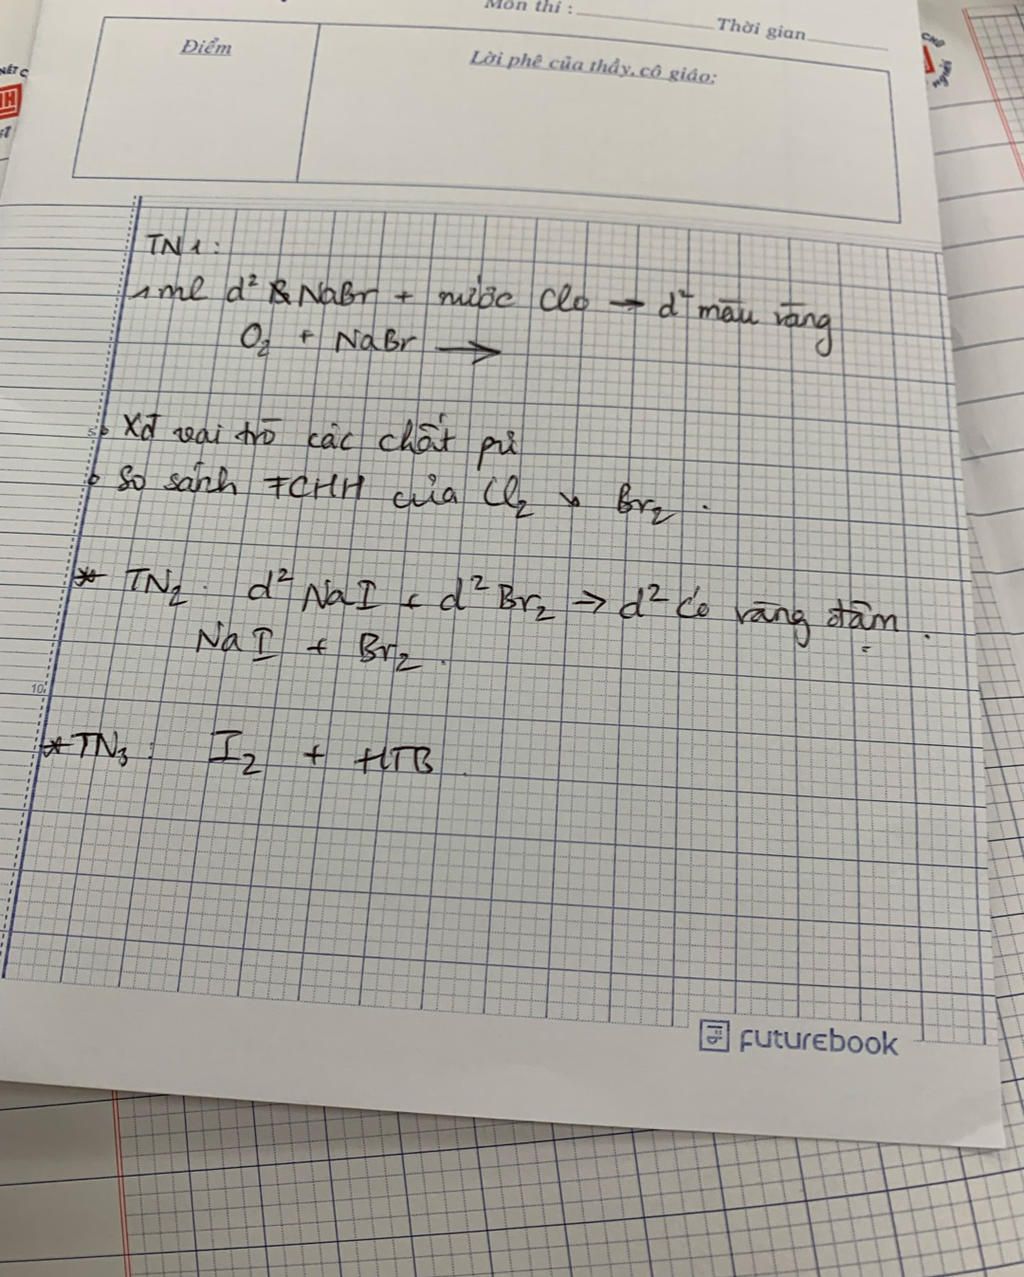 Môn thi :
Thời gian
Điểm
Lời phê của thầy, cô giáo:
TN1:
1ml d² NaBr + nước Clo → d² màu vàng
O₂ + NaBr →
5
Xđ vai trò các chất pứ
So sánh TCHH của Cl₂ Br₂.
* TN₂. d² NaI + d² Br₂ → d² có vàng đậm.
NaI + Br₂.
10
* TN₃: I₂ + HTB
futurebook